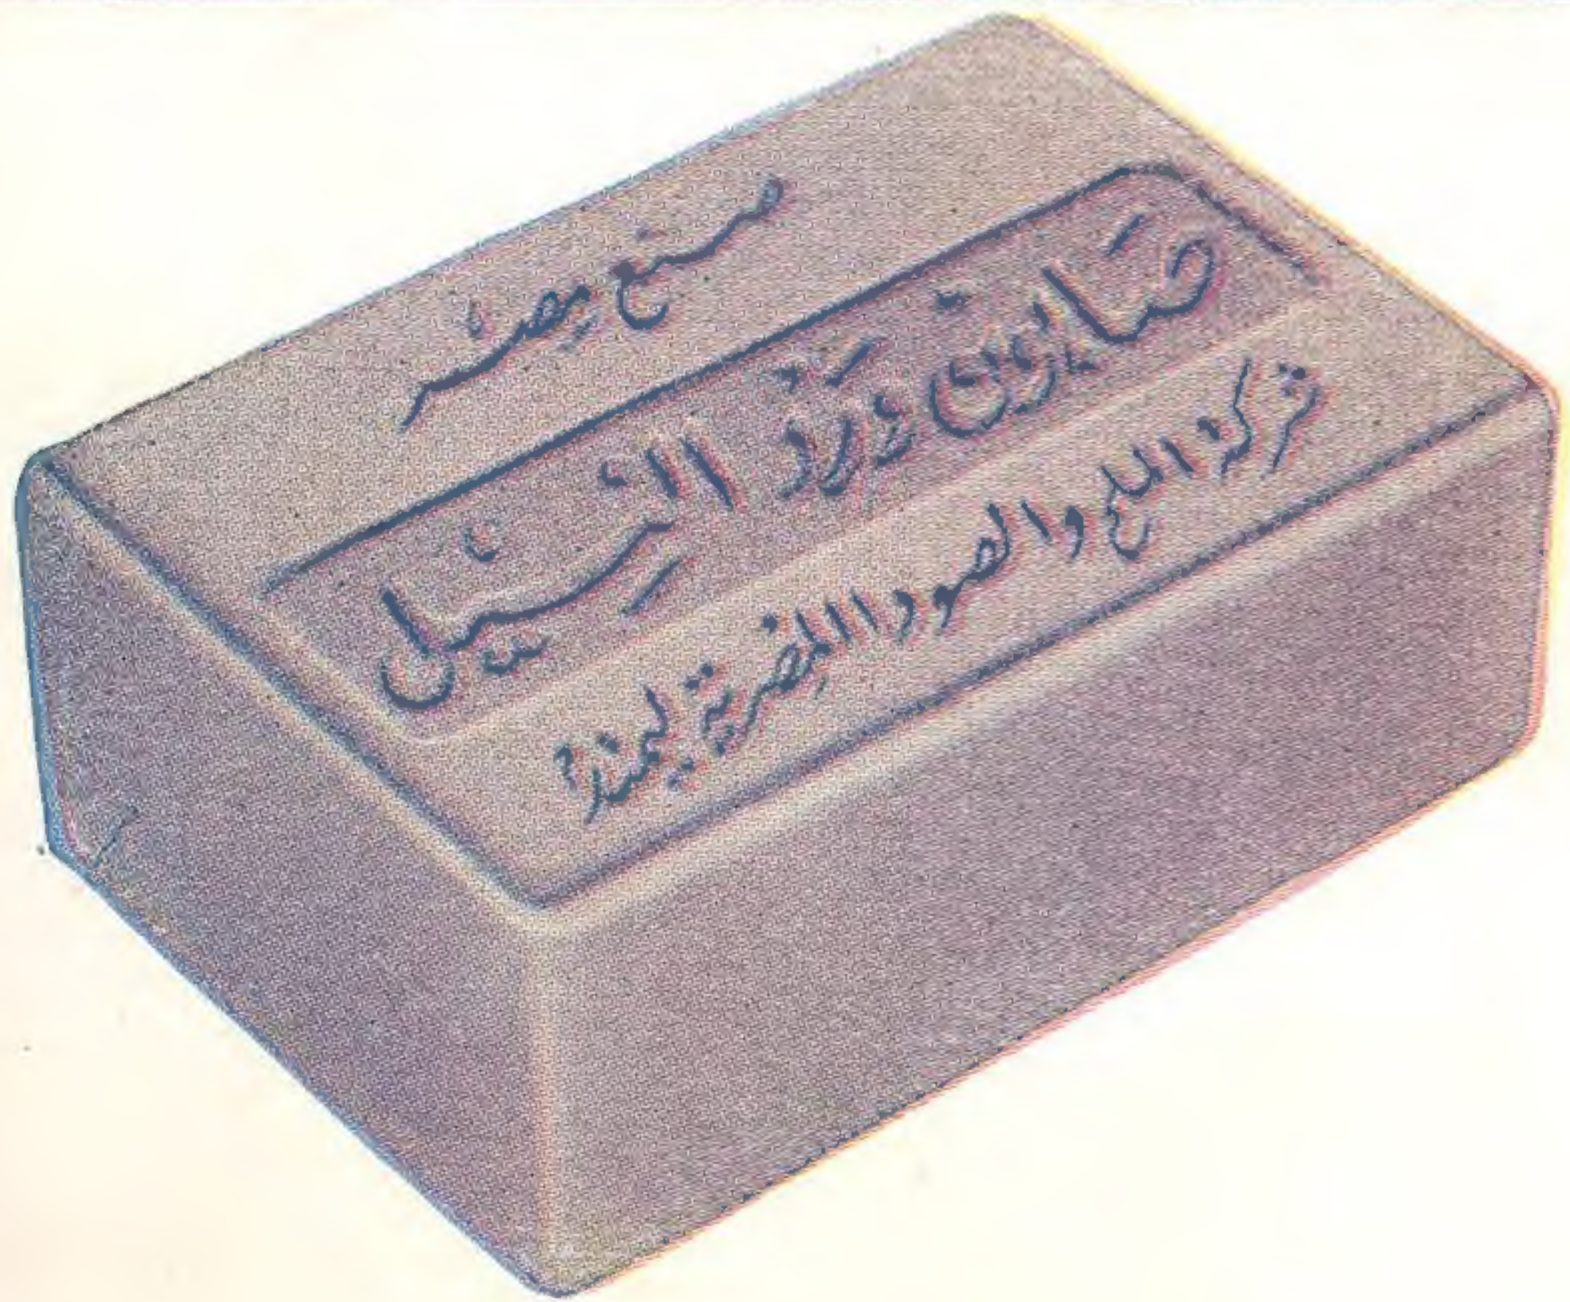 صنع مصر
صابون وَرَد النيل
شركة الملح والصودا المصرية ليمتد